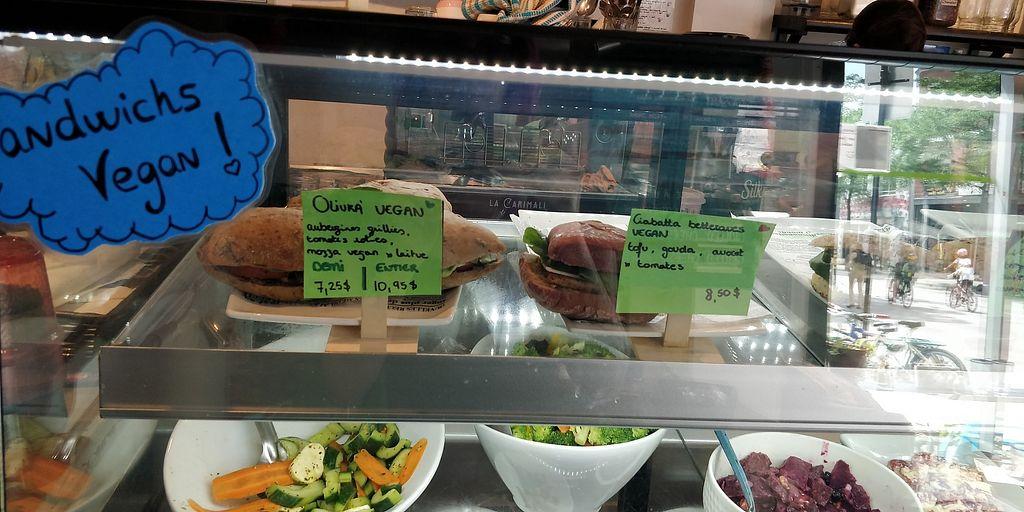 andwichs
Vegan !
LA CARIMALI
Silk
OLIURA VEGAN
aubergines grillées,
tomates
mozza vegan & laitue
DEMI | ENTIER
7,25$ | 10,95$
Ciabatta betteraves
VEGAN
tofu, gouda, avocat
& tomates
8,50$